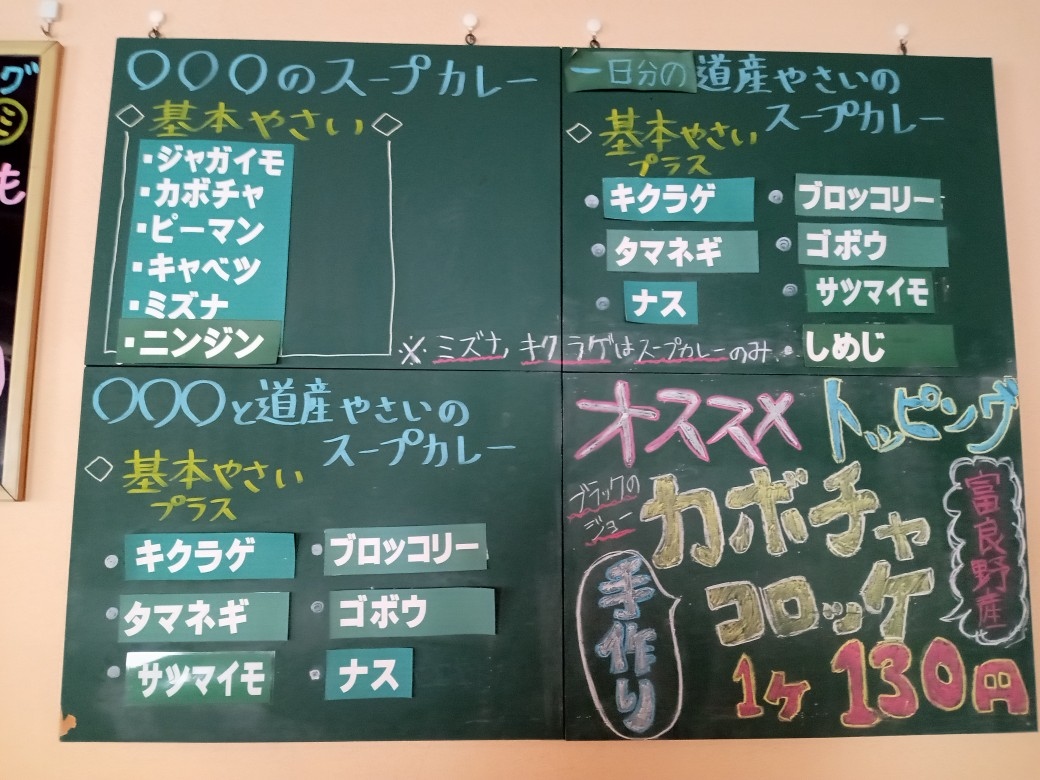 〇〇〇のスープカレー
◇基本やさい◇
・ジャガイモ
・カボチャ
・ピーマン
・キャベツ
・ミズナ
・ニンジン
一日分の道産やさいの
スープカレー
◇基本やさい
プラス
キクラゲ
ブロッコリー
タマネギ
ゴボウ
ナス
サツマイモ
しめじ
※ミズナ,キクラゲはスープカレーのみ
〇〇〇と道産やさいの
スープカレー
◇基本やさい
プラス
キクラゲ
ブロッコリー
タマネギ
ゴボウ
サツマイモ
ナス
オススメ トッピング
ブラックの
ジョー
カボチャ
コロッケ
富良野産
手作り
1ケ 130円
グ
ミ
も